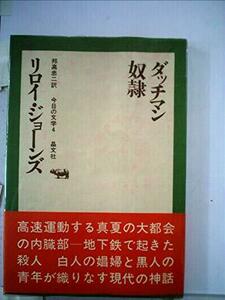 ダッチマン
奴隷
邦高忠二訳 今日の文学4 晶文社
リロイ・ジョーンズ
高速運動する真夏の大都会
の内臓部─地下鉄で起きた
殺人 白人の娼婦と黒人の
青年が織りなす現代の神話